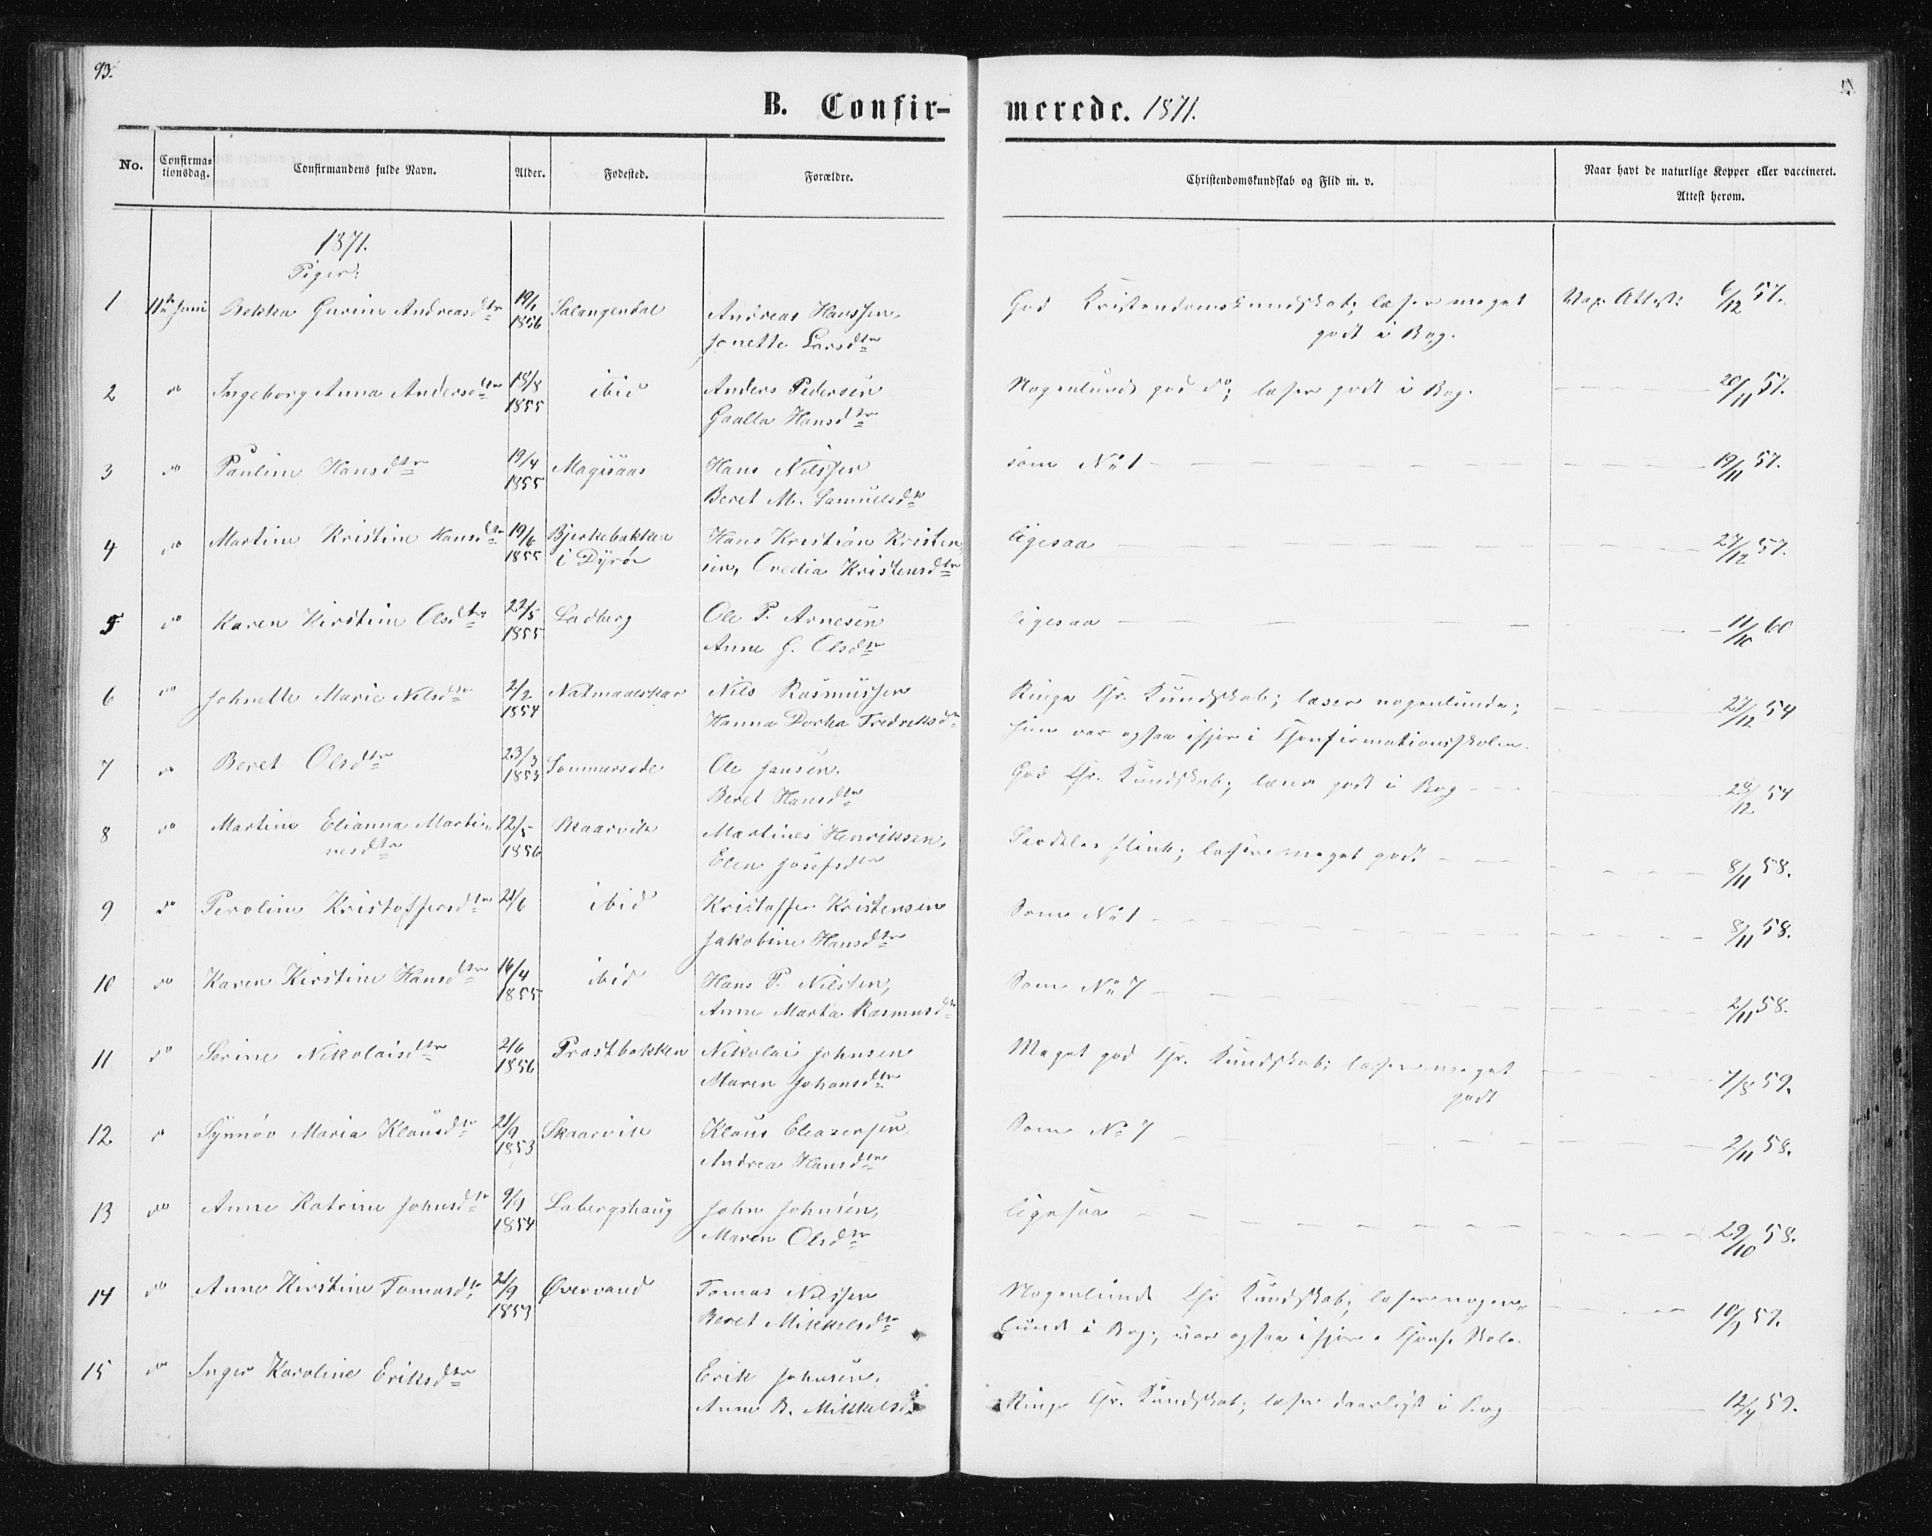 93.
B. Confir-
merede. 1871.
No.
Confirma-
tionsdag.
Confirmandens fulde Navn.
Alder.
Fødested.
Forældre.
Christendomskundskab og Flid m. v.
Naar havt de naturlige Kopper eller vaccineret.
Attest herom.
1871.
Piger:
1 11te Juni Bekka Gurine Andreasdtr 19/1 1856 Salangendal Andreas Hanssen, God Kristendomskundskab; læser meget Vax. Attest: 6/12 57.
Jonette Larsdtr godt i Bog.
2 do Ingeborg Anna Andersdtr 18/8 1855 ibid Anders Pedersen Nogenlunde god do; læser godt i Bog. 20/11 57.
Gaalla Hansdtr
3 do Pauline Hansdtr 19/4 1855 Mogisaas Hans Nilssen som No 1 19/11 57.
Beret M. Samuelsdtr
4 do Martine Kristine Hansdtr 19/6 1855 Bjerkebakken Hans Kristian Kristen- ligesaa 27/12 57.
i Dyrø sen, Ovedia Kristensdtr
5 do Karen Kirstine Olsdtr 22/5 1855 Ladberg Ole P. Arnesen ligesaa 11/10 60
Anne G. Olsdtr
6 do Johnette Marie Nilsdtr 2/2 1854 Natmaalskar Nils Rasmussen Ringe Chr. Kundskab; læser nogenlunde; 27/12 54
Hanna Dorka Fredriksdtr hun var ogsaa ifjor i Konfirmationsskolen.
7 do Beret Olsdtr 23/3 1853 Sommersæde Ole Jensen. God Chr. Kundskab; læser godt i Bog 28/12 54
Beret Hansdtr
8 do Martine Elianna Marti- 12/5 1856 Skaarvik Martines Henriksen, Særdeles flink; læser meget godt 8/11 58.
nesdtr Elen Josefsdtr
9 do Peroline Kristoffersdtr 21/6 ibid Kristoffer Kristensen Som No 1 8/11 58.
Jakobine Hansdtr
10 do Karen Kirstine Hansdtr 16/4 1855 ibid Hans P. Nilsen, Som No 7 2/11 58.
Anne Marta Rasmusdtr
11 do Serine Nikolaisdtr 2/6 1856 Prostbakken Nikolai Johnsen Meget god Chr. Kundskab; læser meget 7/8 59.
Maren Johansdtr godt
12. do Synnøv Maria Klausdtr 21/9 1853 Skaarvik Klaus Eleasersen, Som No 7 2/11 58.
Andrea Hansdtr
13 do Anne Katrine Johnsdtr 9/9 1854 Labergshaug John Johnsen, ligesaa 29/10 58.
Maren Olsdtr
14 do Anne Kirstine Tomasdtr 21/9 1853 Øvervand Tomas Nilssen Nogenlunde Chr. Kundskab; læser nogen-
Beret Mikkelsdtr lunde i Bog; var ogsaa ifjor i Konf. Skole.
15 do Inger Karoline Eriksdtr Erik Johnsen. Ringe Chr. Kundskab; læser daarligt i Bog
Anne B. Mikkelsd